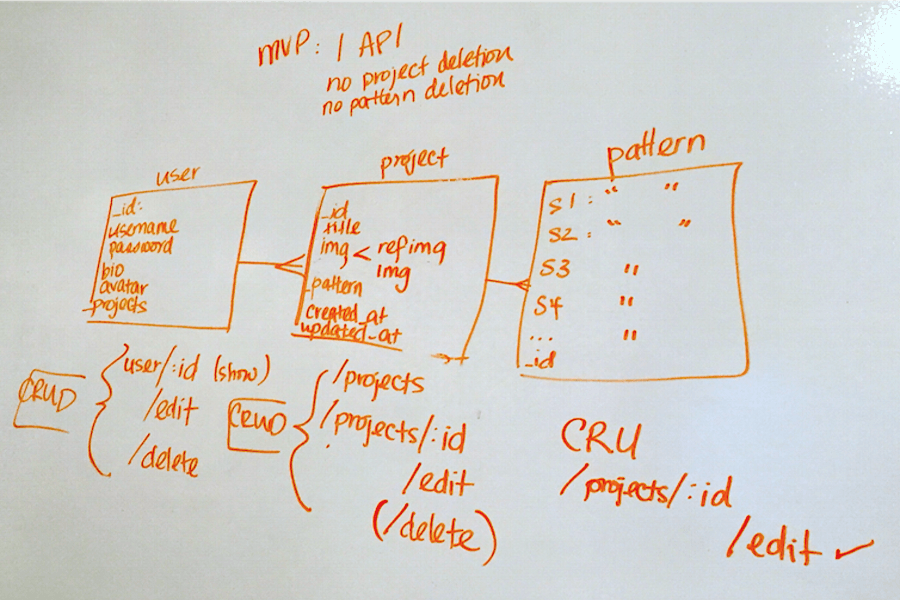 MVP: 1 API
no project deletion
no pattern deletion
user
_id:
username
password
bio
avatar
_projects
project
_id
title
img < refimg
img
_pattern
created_at
updated_at
pattern
S1 : " "
S2 : " "
S3 "
S4 "
... "
_id
CRUD
user/:id (show)
/edit
/delete
CRUD
/projects
/projects/:id
/edit
(/delete)
CRU
/projects/:id
/edit ✓